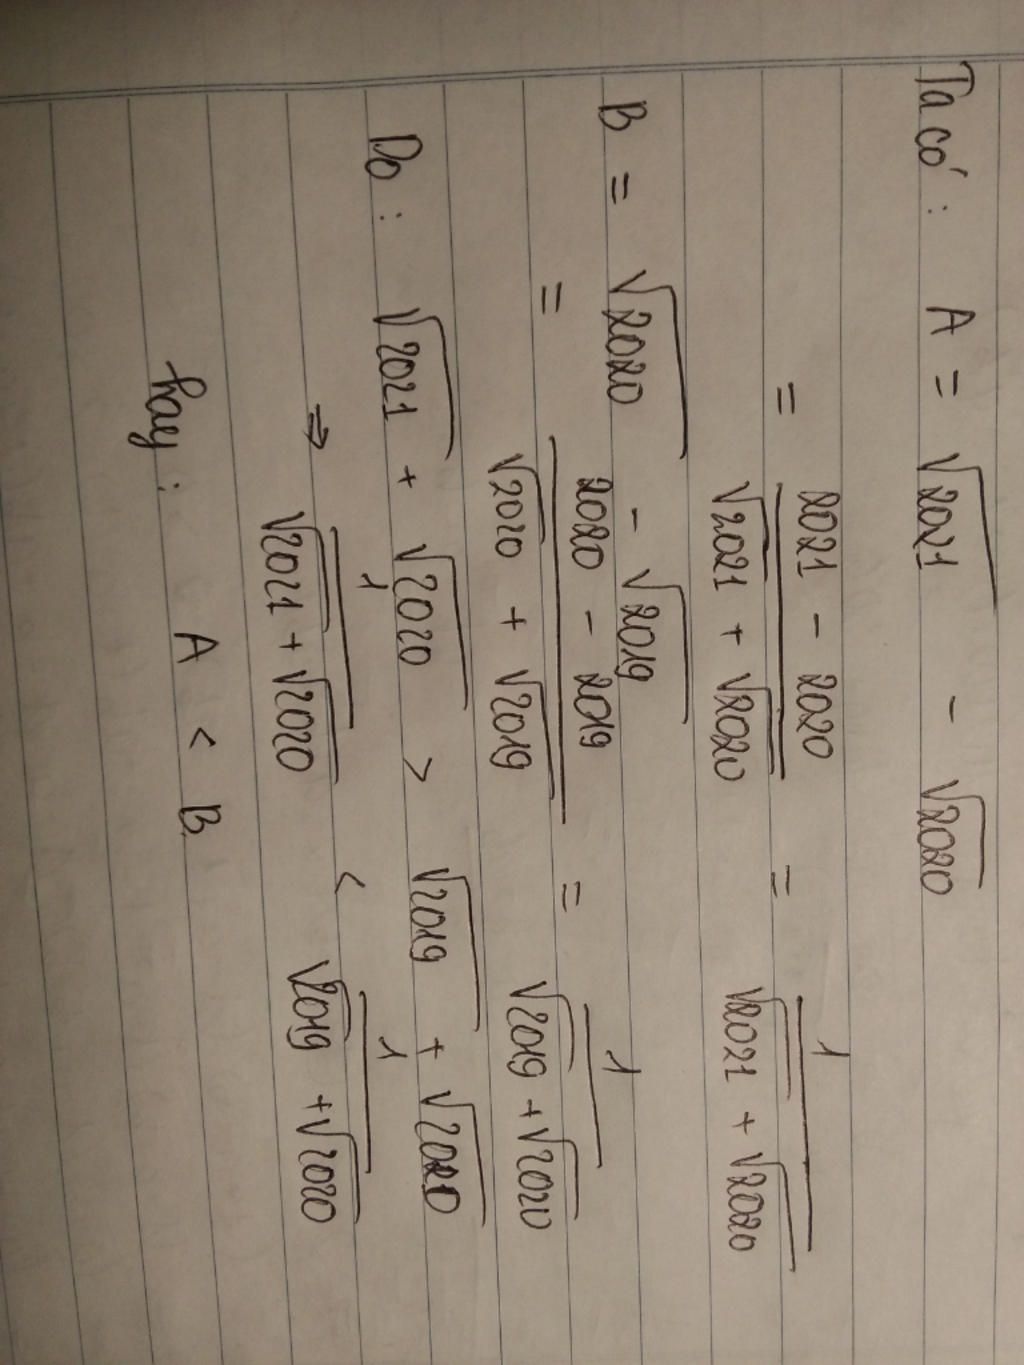 Ta có: A = √2021 - √2020
= (2021 - 2020)/(√2021 + √2020) = 1/(√2021 + √2020)
B = √2020 - √2019
= (2020 - 2019)/(√2020 + √2019) = 1/(√2019 + √2020)
Do: √2021 + √2020 > √2019 + √2020
⇒ 1/(√2021 + √2020) < 1/(√2019 + √2020)
hay: A < B.